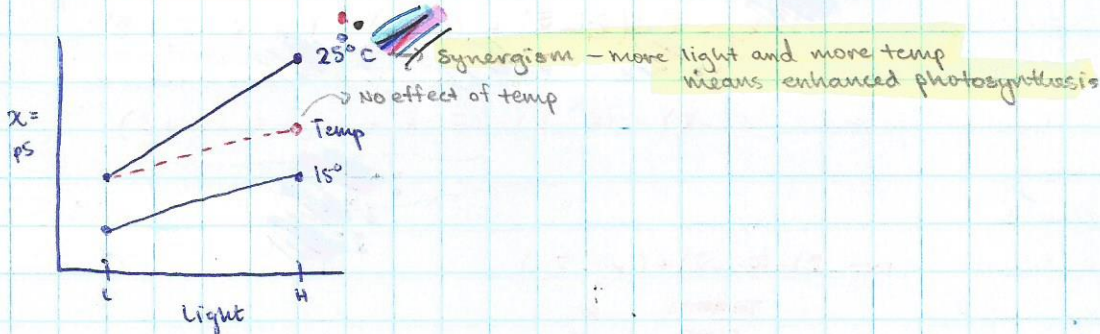 25°C → Synergism – more light and more temp
means enhanced photosynthesis
→ No effect of temp
x̄ =
ps
Temp
15°
L
H
Light